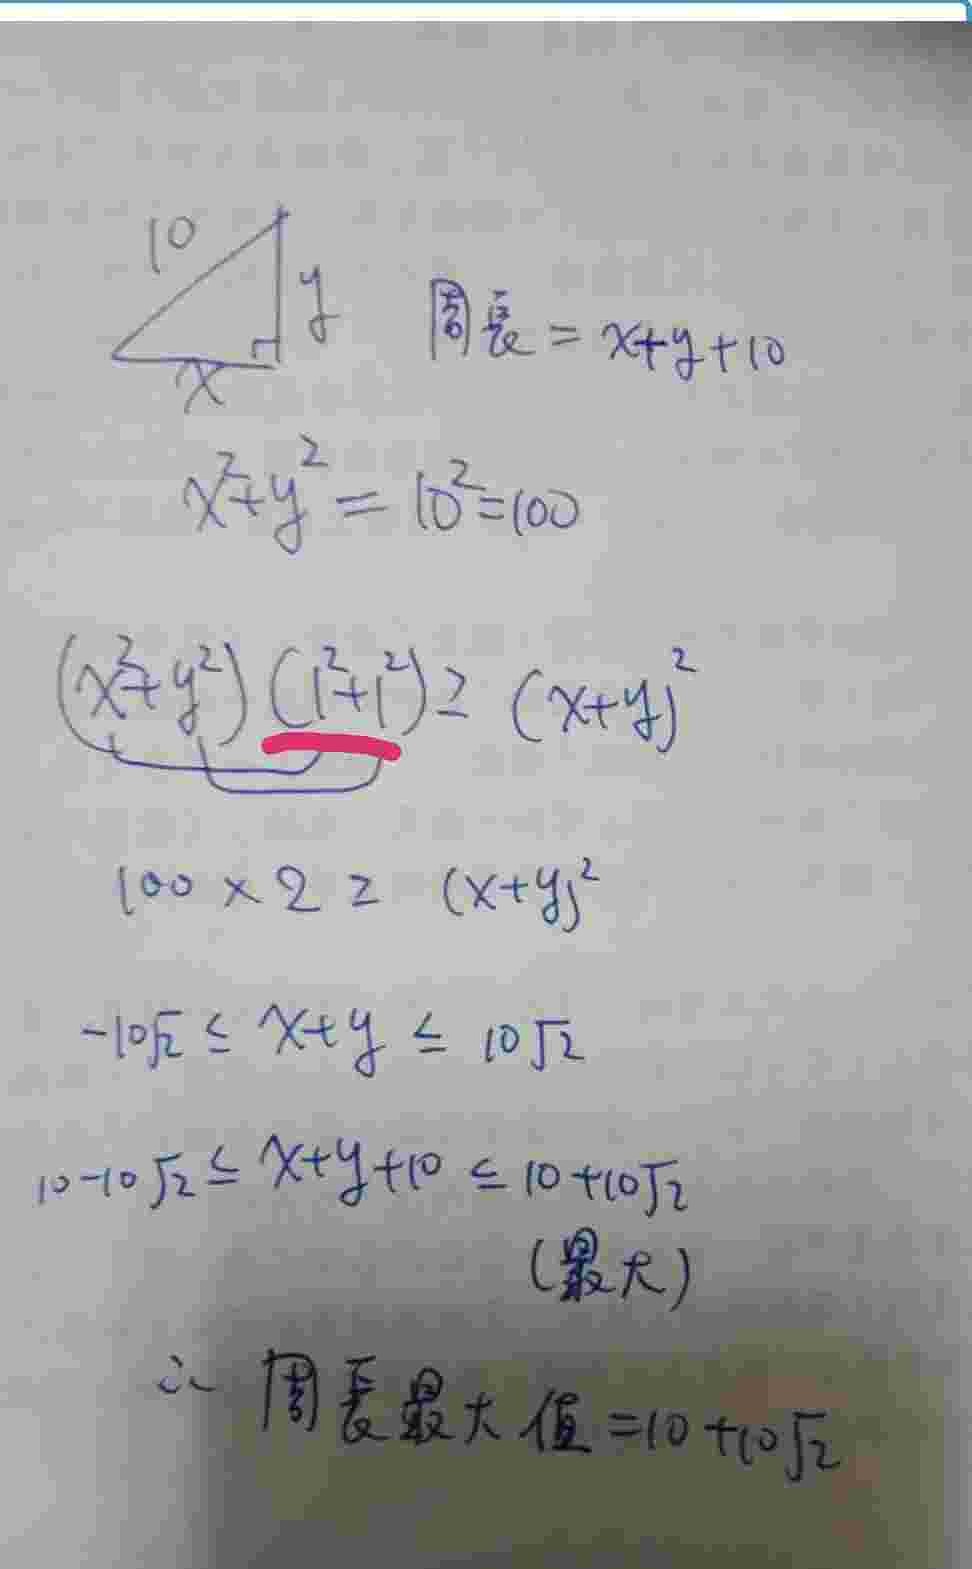 10
y
周長 = x+y+10
x
x²+y² = 10²=100
(x²+y²)(1²+1²) ≥ (x+y)²
100 × 2 ≥ (x+y)²
-10√2 ≤ x+y ≤ 10√2
10-10√2 ≤ x+y+10 ≤ 10+10√2
(最大)
∴ 周長最大值=10+10√2